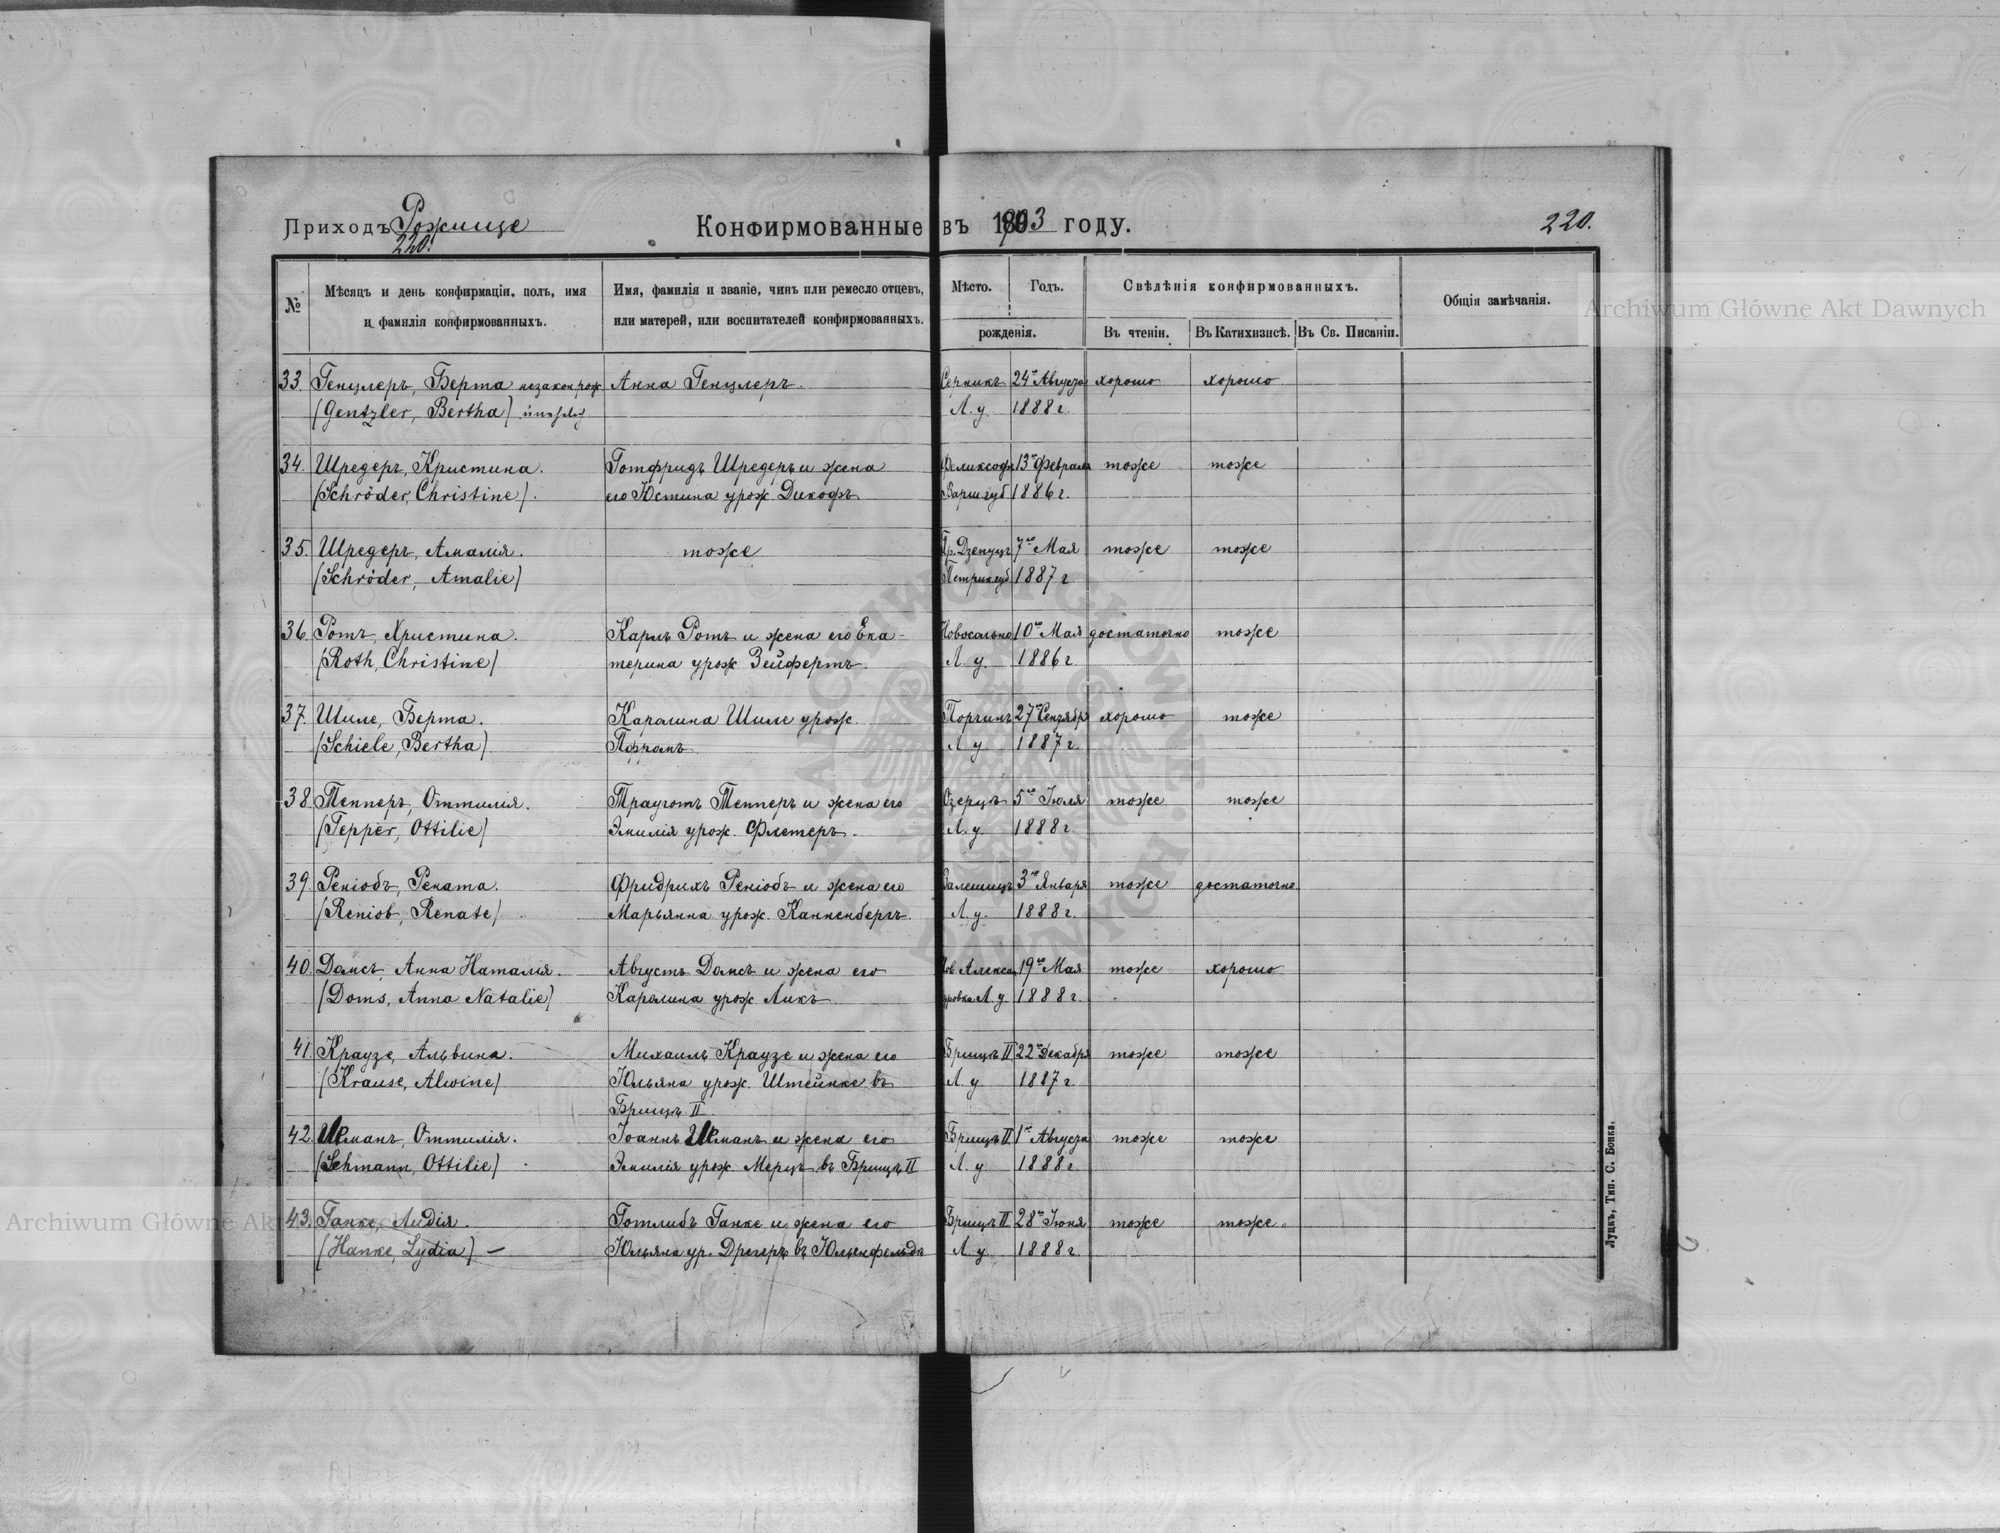 Приходъ Рожище
220.
Конфирмованные въ 1903 году.
220.
№
Мѣсяцъ и день конфирмаціи, полъ, имя
и фамилія конфирмованныхъ.
Имя, фамилія и званіе, чинъ или ремесло отцевъ,
или матерей, или воспитателей конфирмованныхъ.
Мѣсто.
Годъ.
рожденія.
Свѣдѣнія конфирмованныхъ.
Въ чтеніи.
Въ Катихизисѣ.
Въ Св. Писаніи.
Общія замѣчанія.
33. Генцлеръ, Берта незакон рож. Анна Генцлеръ. Серникъ 24го Августа хорошо хорошо
(Gentzler, Bertha) Л. у. 1888 г.
34. Шредеръ, Кристина. Готфридъ Шредеръ и жена 13го Февраля тоже тоже
(Schröder, Christine). его Юстина урож. Дикофъ Варш губ 1886 г.
35. Шредеръ, Амалія. тоже 7го Мая тоже тоже
(Schröder, Amalie) 1887 г
36. Ротъ, Христина. Карлъ Ротъ и жена его Ека- 10го Мая достаточно тоже
(Roth, Christine) терина урож. Зейфертъ. Л. у. 1886 г.
37. Шиле, Берта. Каролина Шиле урож. Порчинъ 27го Сентября хорошо тоже
(Schiele, Bertha) Пфралъ. Л у. 1887 г.
38. Тепперъ, Оттилія. Трауготъ Тепперъ и жена его Озерцъ 5го Іюля тоже тоже
(Tepper, Ottilie) Эмилія урож. Флетеръ. Л. у. 1888 г.
39. Реніобъ, Рената. Фридрихъ Реніобъ и жена его Залешицъ 3го Января тоже достаточно
(Reniob, Renate) Марьянна урож. Канненбергъ. Л. у. 1888 г.
40. Домсъ, Анна Наталія. Августъ Домсъ и жена его Нов Алексан 19го Мая тоже хорошо
(Doms, Anna Natalie) Каролина урож Ликъ. дровка Л. у 1888 г.
41. Краузе, Альвина. Михаилъ Краузе и жена его Брищъ II 22го Декабря тоже тоже
(Krause, Alwine) Юльяна урож. Штейнке въ Л. у 1887 г.
Брищъ II.
42. Оттилія. Іоаннъ и жена его Брищъ II 1го Августа тоже тоже
(Lehmann, Ottilie) Эмилія урож. Мерцъ въ Брищъ II Л. у. 1888 г
43. Ганке, Лидія. Готлибъ Ганке и жена его Брищъ II 28го Іюня тоже тоже
(Hanke, Lydia) — Юльяна ур. Дрегеръ въ Юльенфельдъ Л. у 1888 г.
Луцкъ, Тип. С. Бонка.
Archiwum Główne Akt Dawnych
Archiwum Główne Akt Dawnych
ARCHIWUM GŁÓWNE AKT DAWNYCH